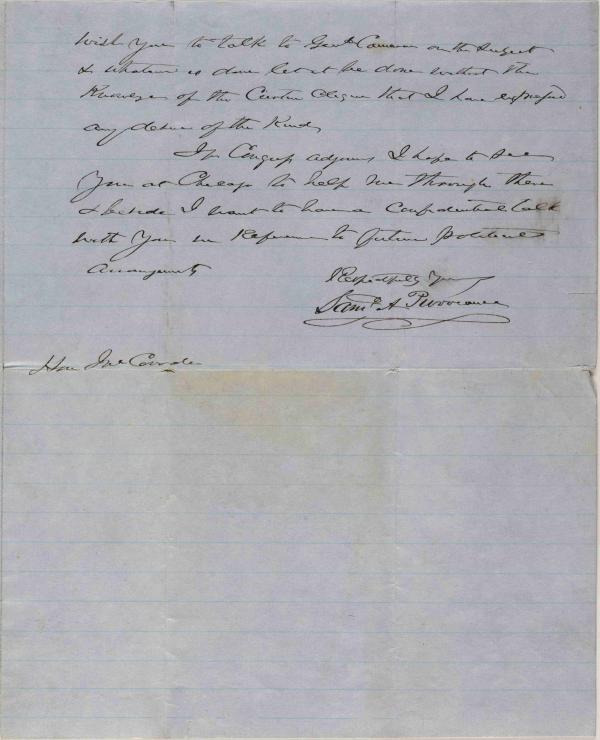 wish you to talk to Genl Cameron on the subject
& whatever is done let it be done without the
Knowlege of the Curtin Clique that I have expressed
any desire of the Kind,
If Congress adjourns I hope to see
you at Chicago to help me through there
& beside I want to have a confidential talk
with you in Reference to future Political
arrangements
Respectfully Yours
Saml A Purviance
Hon Jno Covode